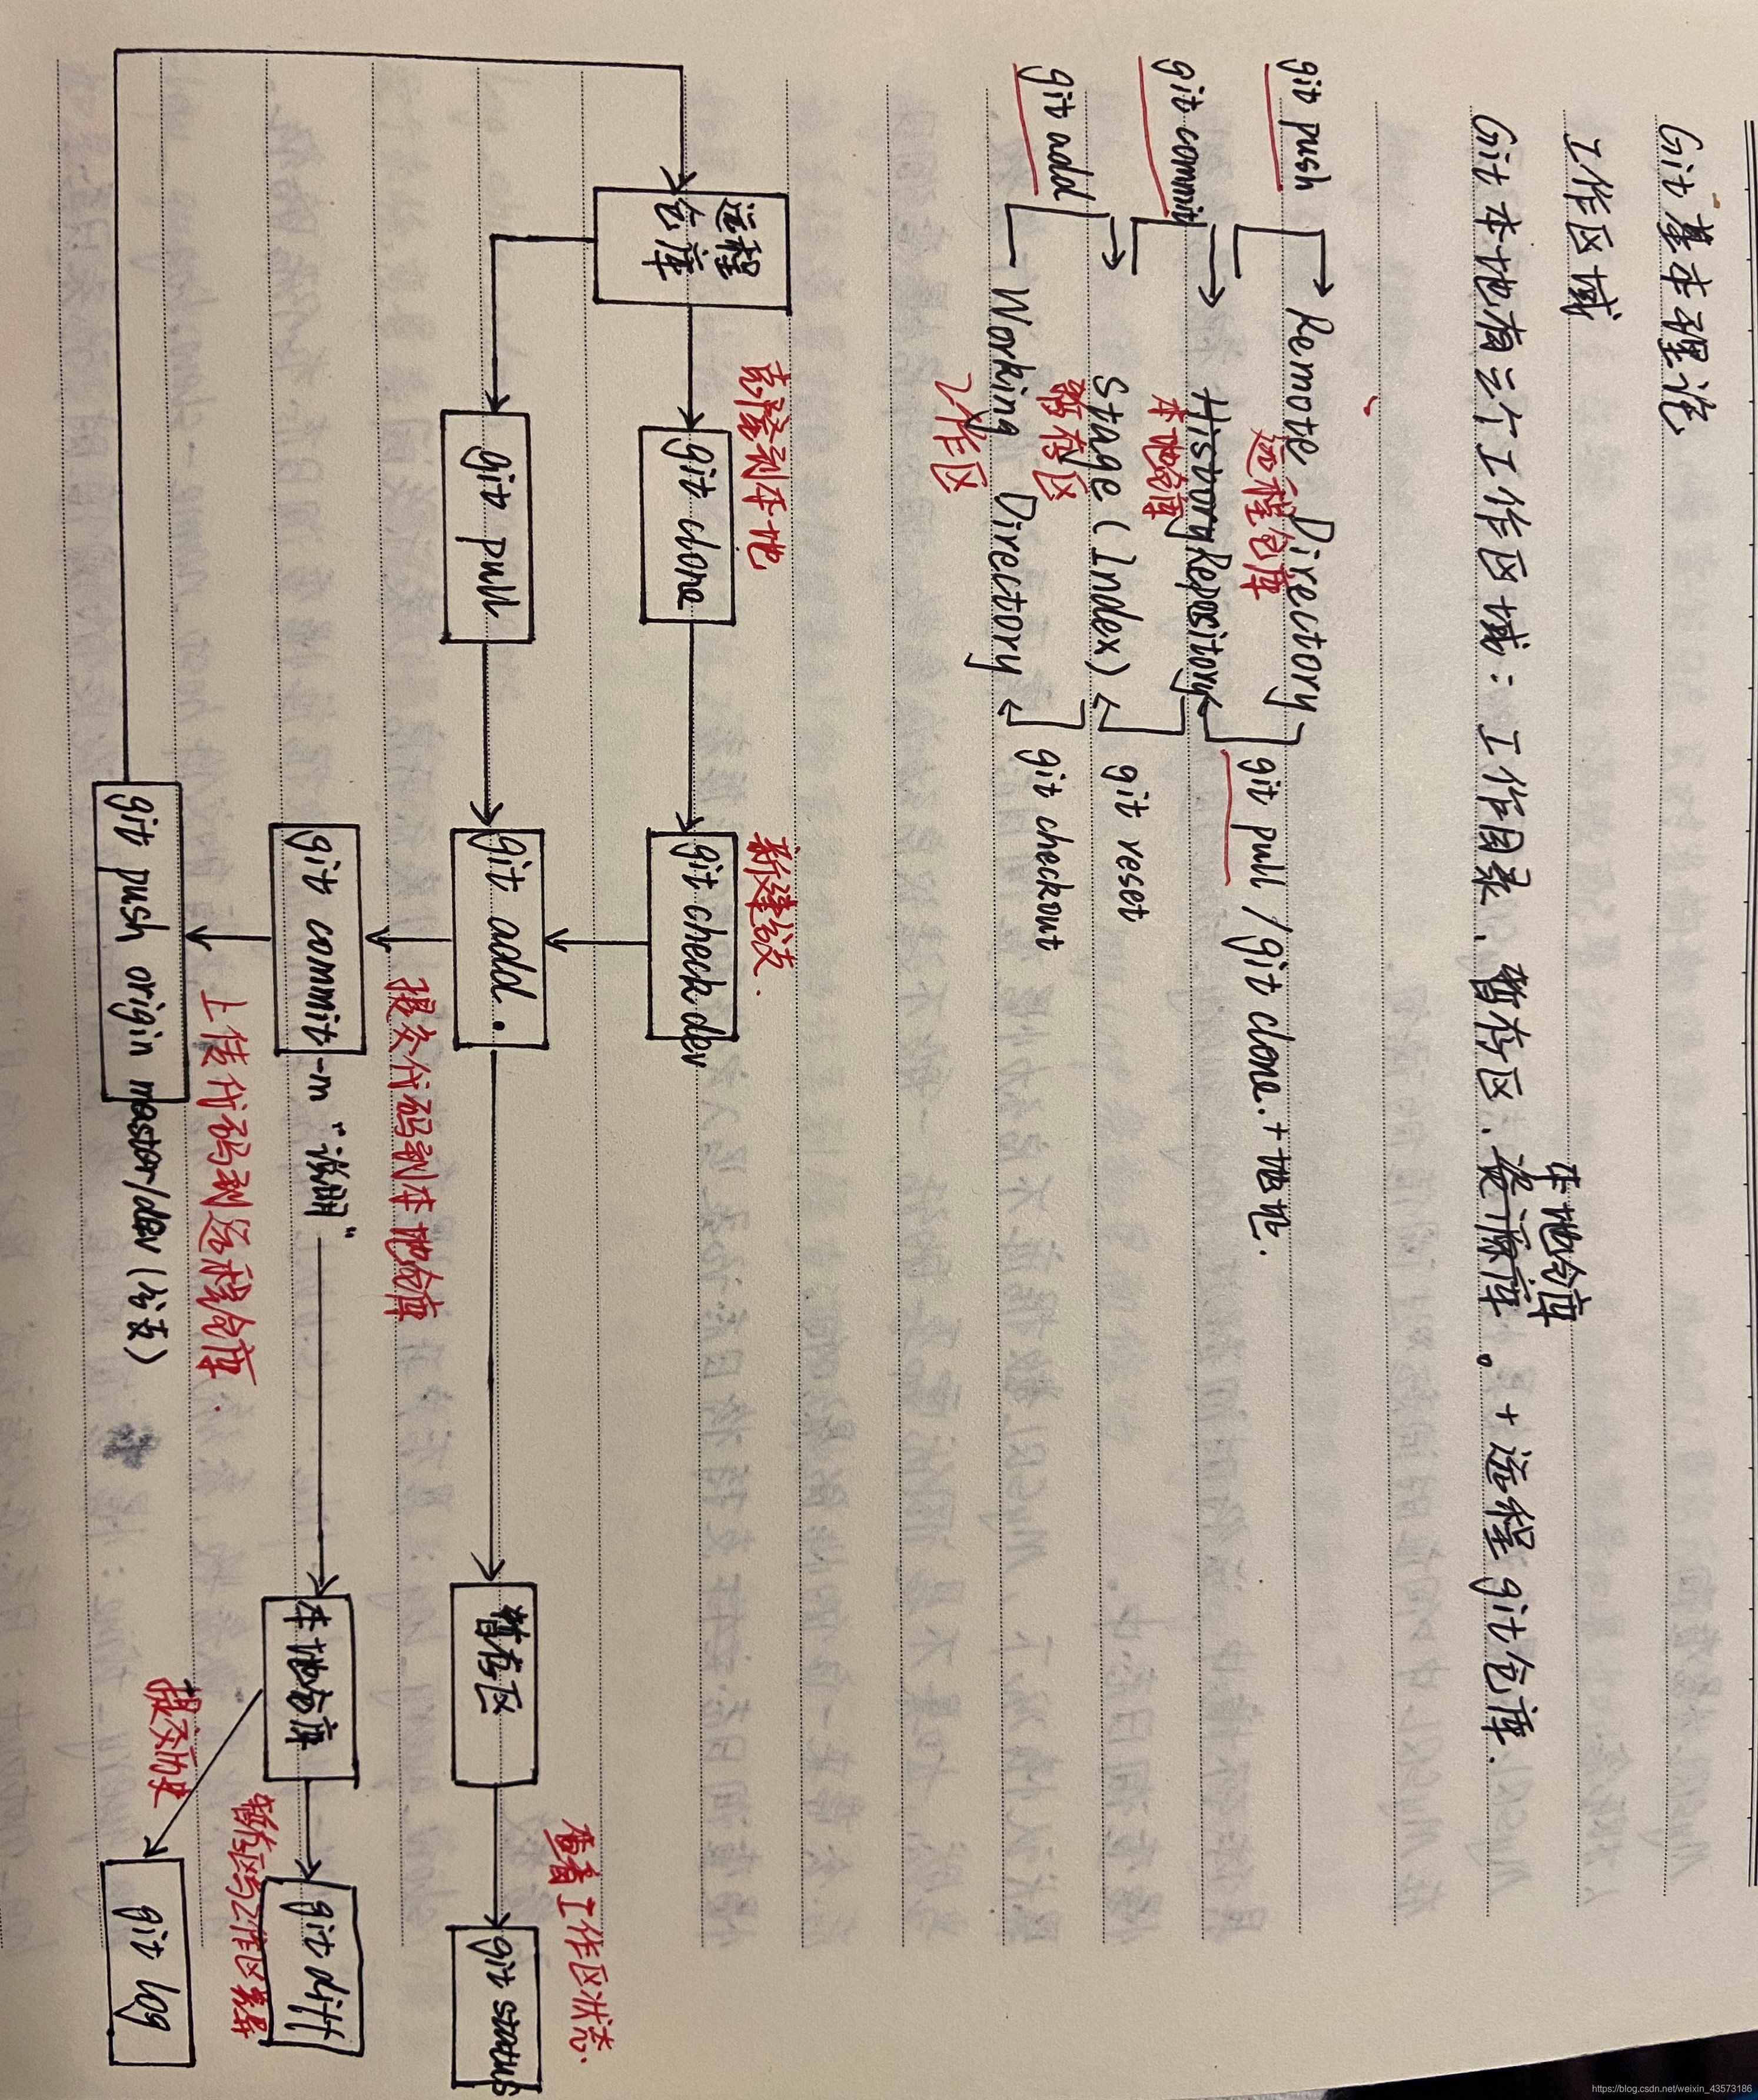 Git 基本理论
工作区域
本地仓库
Git 本地有三个工作区域：工作目录、暂存区、资源库。+远程git仓库.
git push
Remote Directory
远程仓库
git pull /git clone.+地址.
git commit
History Repository
本地仓库
git reset
git add
Stage (Index)
暂存区
git checkout
Working Directory
工作区
克隆到本地
新建分支.
远程
仓库
git clone
git check dev
查看工作区状态.
git pull
git add .
暂存区
git status
提交代码到本地仓库
git commit -m “说明”
本地仓库
git diff
上传代码到远程仓库.
暂存区与工作区差异
提交历史
git push origin master/dev (分支)
git log
https://blog.csdn.net/weixin_43573186